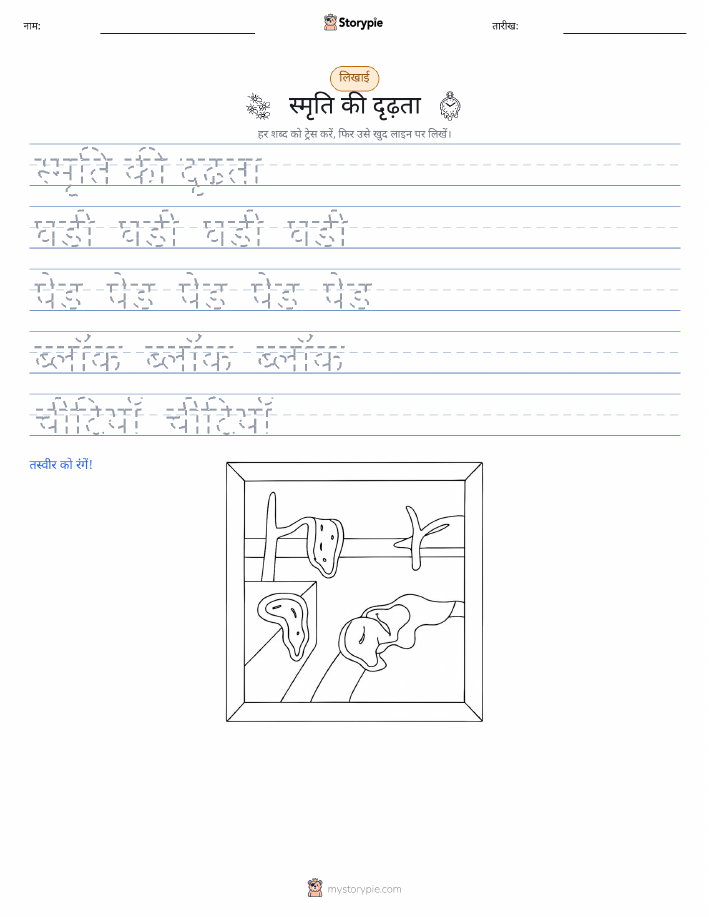 नाम:
Storypie
तारीख:
लिखाई
स्मृति की दृढ़ता
हर शब्द को ट्रेस करें, फिर उसे खुद लाइन पर लिखें।
स्मृति की दृढ़ता
घड़ी घड़ी घड़ी घड़ी
पेड़ पेड़ पेड़ पेड़ पेड़
ब्लॉक ब्लॉक ब्लॉक
चींटियाँ चींटियाँ
तस्वीर को रंगें!
mystorypie.com